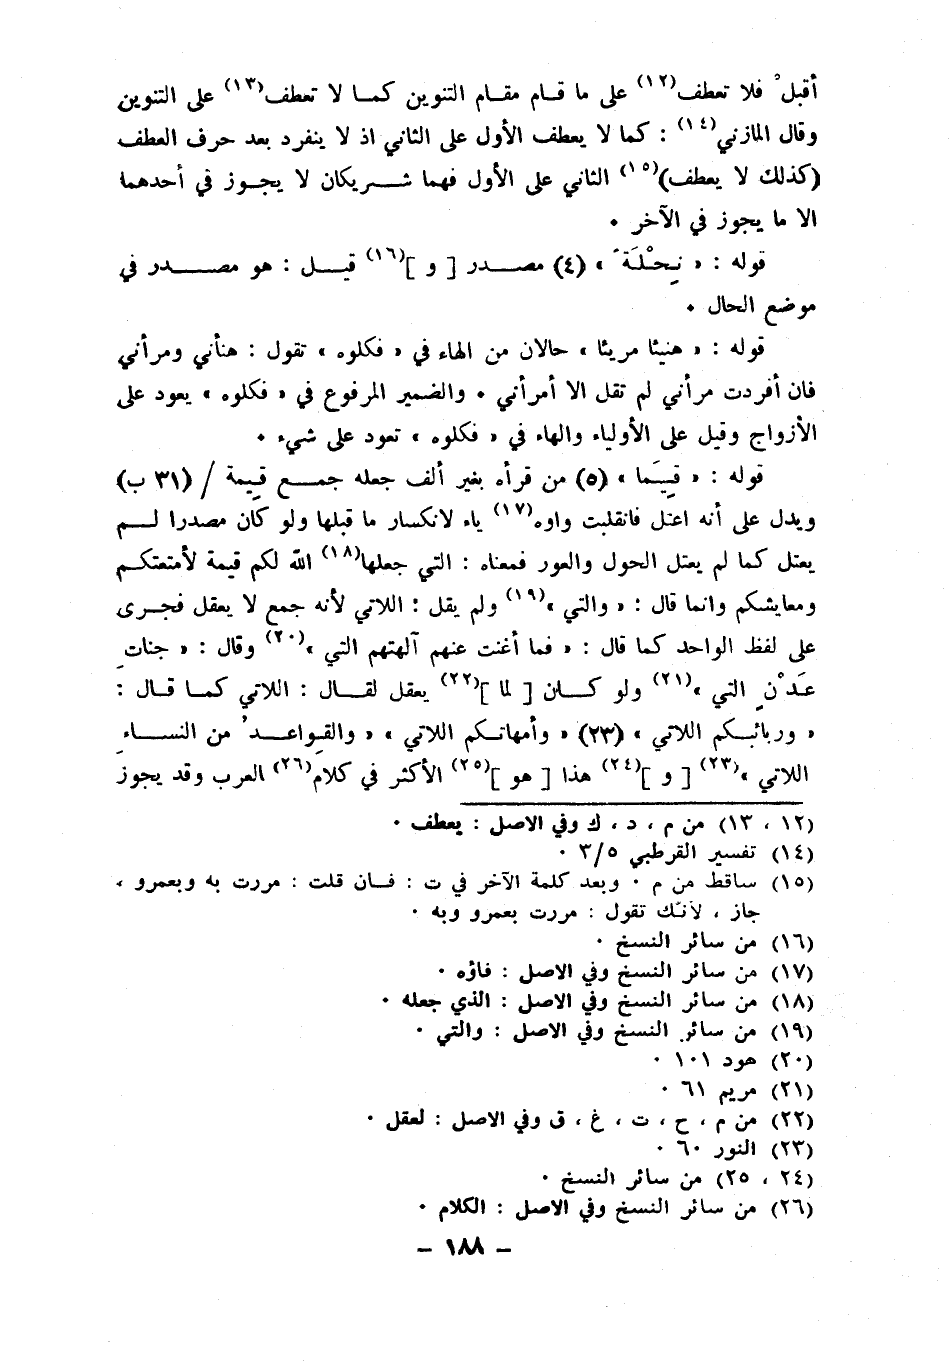 أقبلْ فلا تعطف(١٢) على ما قام مقام التنوين كما لا تعطف(١٣) على التنوين
وقال المازني(١٤) : كما لا يعطف الأول على الثاني اذ لا ينفرد بعد حرف العطف
(كذلك لا يعطف)(١٥) الثاني على الأول فهما شريكان لا يجوز في أحدهما
الا ما يجوز في الآخر ٠
قوله : « نِحْلَةً » (٤) مصدر [ و ](١٦) قيل : هو مصدر في
موضع الحال ٠
قوله : « هنيئا مريئا » حالان من الهاء في « فكلوه » تقول : هنأني ومرأني
فان أفردت مرأني لم تقل الا أمرأني ٠ والضمير المرفوع في « فكلوه » يعود على
الأزواج وقيل على الأولياء والهاء في « فكلوه » تعود على شيء ٠
قوله : « قِيَما » (٥) من قرأه بغير ألف جعله جمع قِيمة / (٣١ ب)
ويدل على أنه اعتل فانقلبت واوه(١٧) ياء لانكسار ما قبلها ولو كان مصدرا لم
يعتل كما لم يعتل الحول والعور فمعناه : التي جعلها(١٨) الله لكم قيمة لأمتعتكم
ومعايشكم وانما قال : « والتي »(١٩) ولم يقل : اللاتي لأنه جمع لا يعقل فجرى
على لفظ الواحد كما قال : « فما أغنت عنهم آلهتهم التي »(٢٠) وقال : « جناتِ
عَدْنٍ التي »(٢١) ولو كان [ لما ](٢٢) يعقل لقال : اللاتي كما قال :
« وربائبكم اللاتي » (٢٣) « وأمهاتكم اللاتي » « والقواعدُ من النساءِ
اللاتي »(٢٣) [ و ](٢٤) هذا [ هو ](٢٥) الأكثر في كلام(٢٦) العرب وقد يجوز
(١٢ ، ١٣) من م ، د ، ك وفي الاصل : يعطف ٠
(١٤) تفسير القرطبي ٣/٥ ٠
(١٥) ساقط من م ٠ وبعد كلمة الآخر في ت : فان قلت : مررت به وبعمرو ،
جاز ، لأنّك تقول : مررت بعمرو وبه ٠
(١٦) من سائر النسخ ٠
(١٧) من سائر النسخ وفي الاصل : فاؤه ٠
(١٨) من سائر النسخ وفي الاصل : الذي جعله ٠
(١٩) من سائر النسخ وفي الاصل : والتي ٠
(٢٠) هود ١٠١ ٠
(٢١) مريم ٦١ ٠
(٢٢) من م ، ح ، ت ، غ ، ق وفي الاصل : لعقل ٠
(٢٣) النور ٦٠ ٠
(٢٤ ، ٢٥) من سائر النسخ ٠
(٢٦) من سائر النسخ وفي الاصل : الكلام ٠
– ١٨٨ –